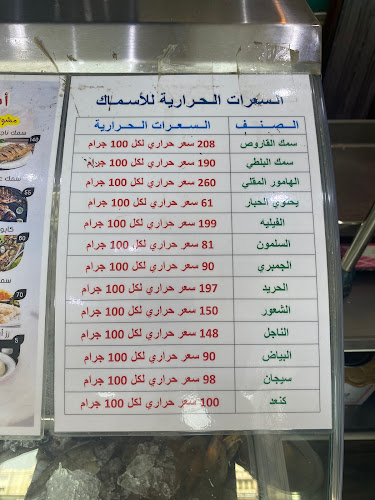 السعرات الحرارية للأسماك
الصنف السعرات الحرارية
سمك القاروص 208 سعر حراري لكل 100 جرام
سمك البلطي 190 سعر حراري لكل 100 جرام
الهامور المقلي 260 سعر حراري لكل 100 جرام
يحتوي الحبار 61 سعر حراري لكل 100 جرام
الفيليه 199 سعر حراري لكل 100 جرام
السلمون 81 سعر حراري لكل 100 جرام
الجمبري 90 سعر حراري لكل 100 جرام
الحريد 197 سعر حراري لكل 100 جرام
الشعور 150 سعر حراري لكل 100 جرام
الناجل 148 سعر حراري لكل 100 جرام
البياض 90 سعر حراري لكل 100 جرام
سيجان 98 سعر حراري لكل 100 جرام
كنعد 100 سعر حراري لكل 100 جرام